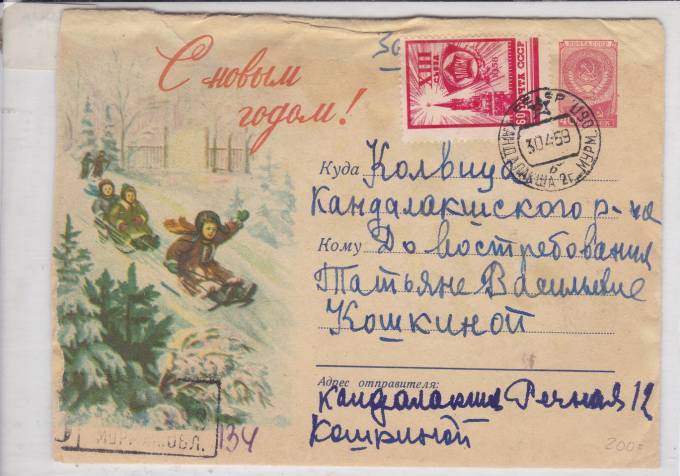 С новым
годом!
30
XIII
СЪЕЗД
1958
ПОЧТА СССР
60
ПОЧТА СССР
40
КАНДАЛАКША 2 МУРМ.
30.4.59
б
Куда Колвица
Кандалакшского р-на
Кому До востребования
Татьяне Васильевне
Кошкиной
Адрес отправителя:
Кандалакша Речная 12
Кошкиной
МУРМ.
134
200=